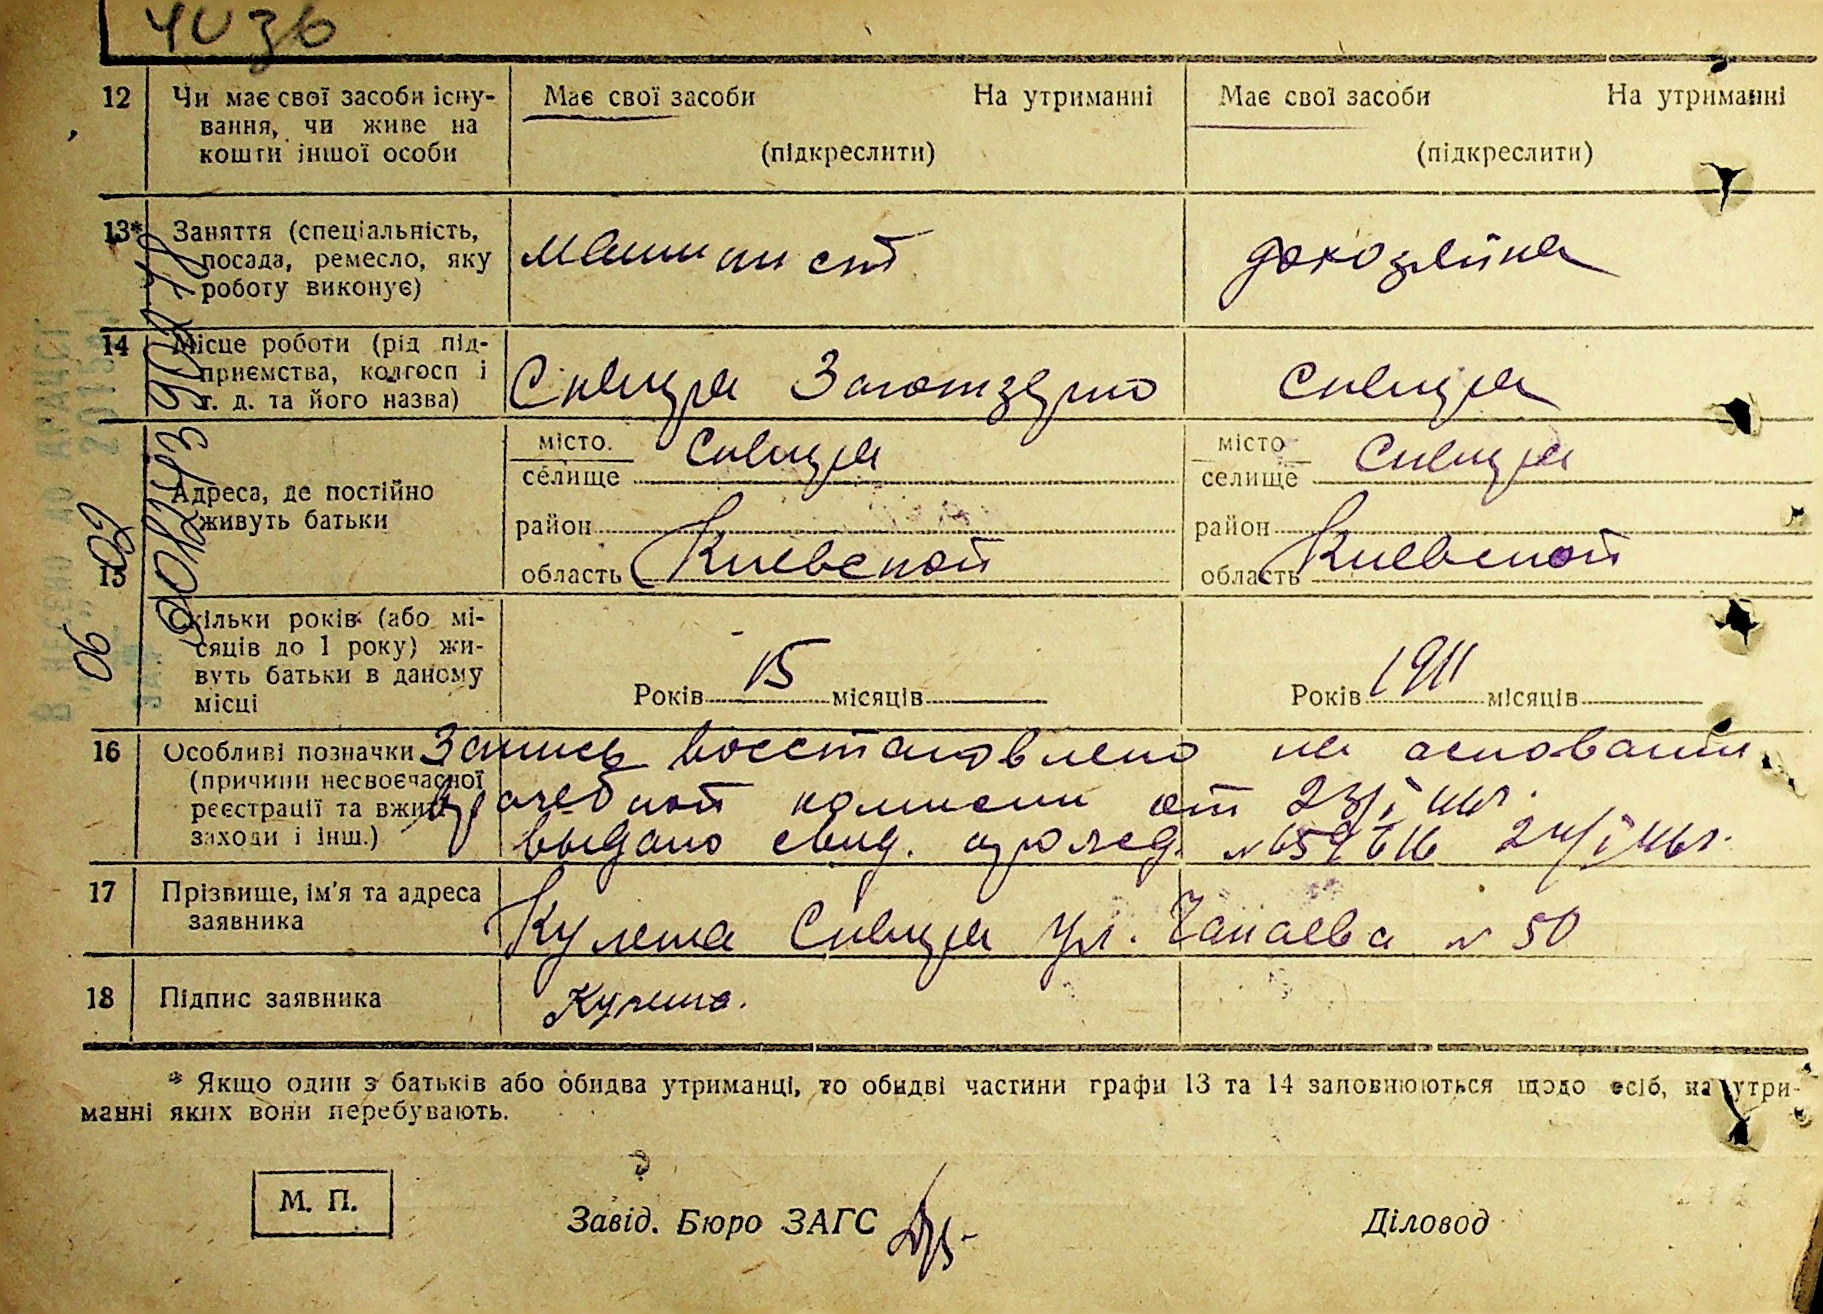 12 Чи має свої засоби існу- Має свої засоби На утриманні Має свої засоби На утриманні
вання, чи живе на
кошти іншої особи (підкреслити) (підкреслити)
13* Заняття (спеціальність,
посада, ремесло, яку машинист домохозяйка
роботу виконує)
14 Місце роботи (рід під-
приємства, колгосп і Сквира Заготзерно Сквира
т. д. та його назва)
місто Сквира місто Сквира
селище селище
15 Адреса, де постійно
живуть батьки район район
область Киевской область Киевской
Скільки років (або мі-
сяців до 1 року) жи-
вуть батьки в даному Років 15 місяців Років 1911 місяців
місці
16 Особливі позначки Запись восстановлено на основании
(причини несвоєчасної
реєстрації та вжиті врачебной комисии от 23/I 46г.
заходи і інш.) выдано свид. о рожд. 24/I 46г.
17 Прізвище, ім'я та адреса
заявника Кулеша Сквира ул. Чапаева № 50
18 Підпис заявника Кулеша.
* Якщо один з батьків або обидва утриманці, то обидві частини графи 13 та 14 заповнюються щодо осіб, на утри-
манні яких вони перебувають.
М. П. Завід. Бюро ЗАГС Діловод